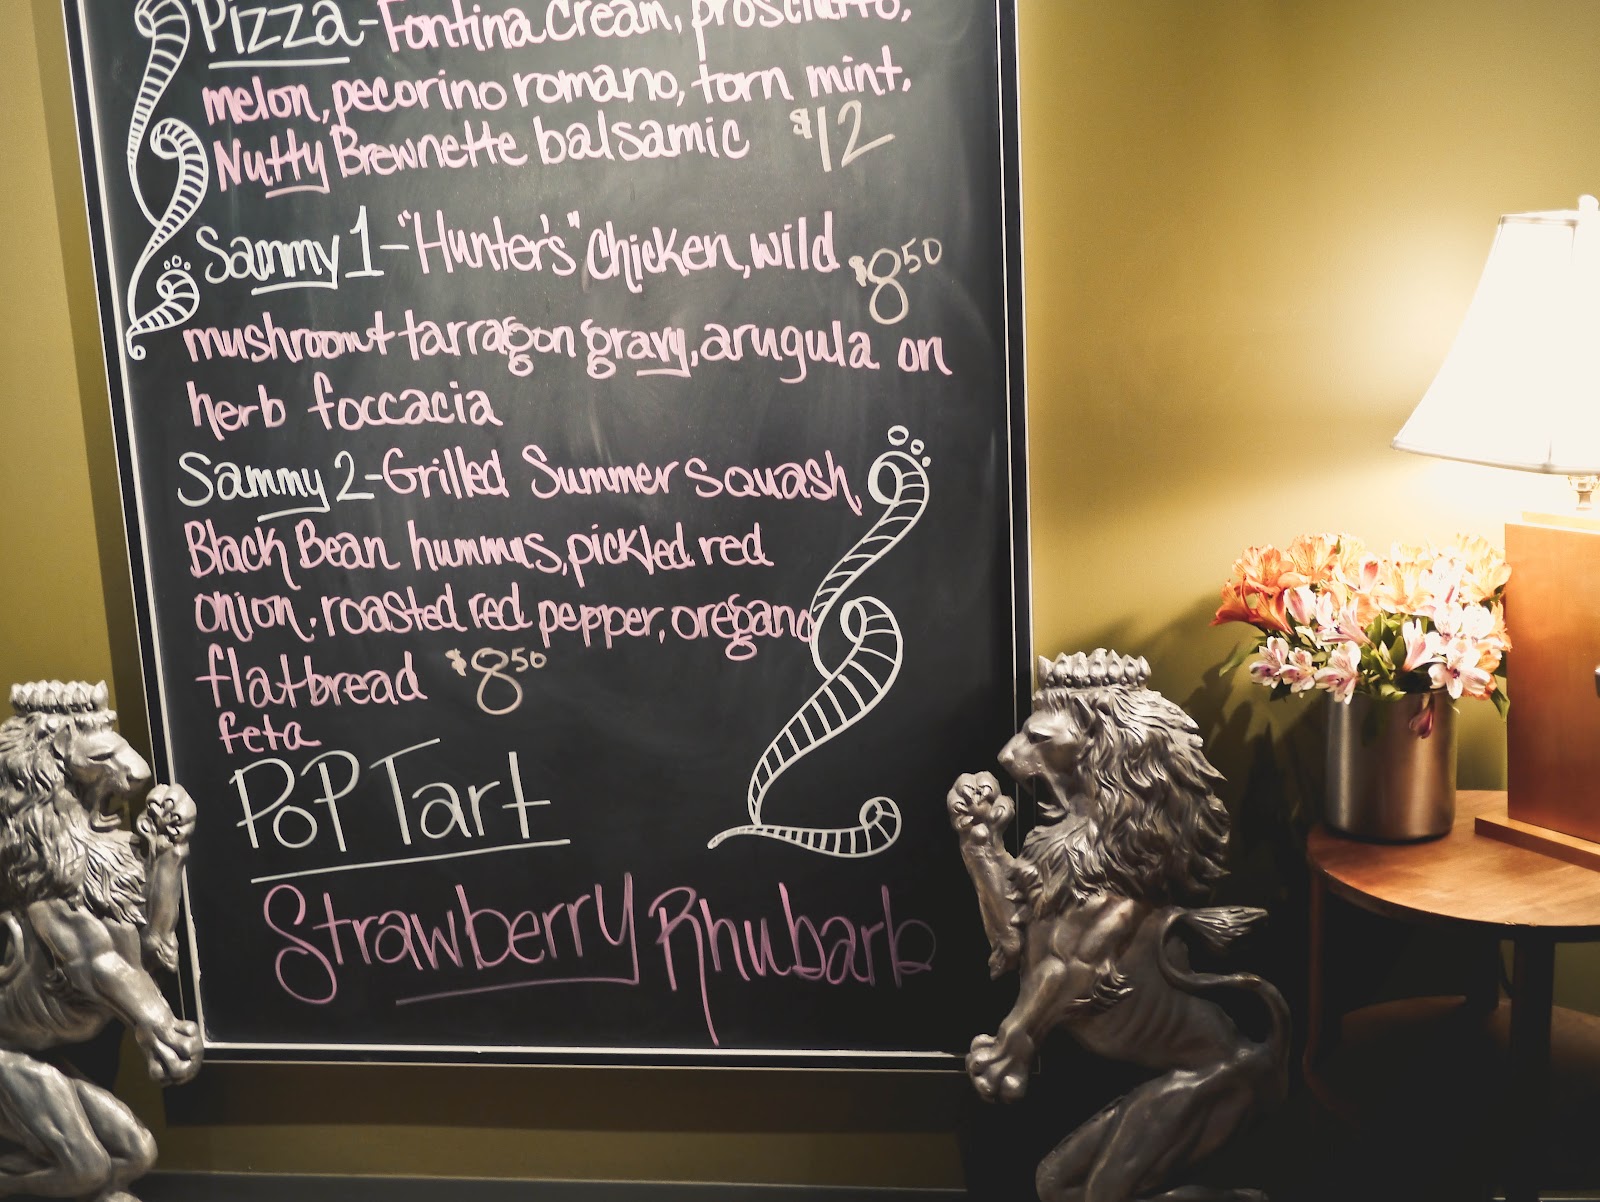 Pizza - Fontina Cream, prosciutto,
melon, pecorino romano, torn mint,
Nutty Brewnette balsamic $12
Sammy 1 - "Hunter's" Chicken, wild $8 50
mushroom + tarragon gravy, arugula on
herb foccacia
Sammy 2 - Grilled Summer Squash,
Black Bean hummus, pickled red
onion, roasted red pepper, oregano
flatbread $8 50
feta
Pop Tart
Strawberry Rhubarb